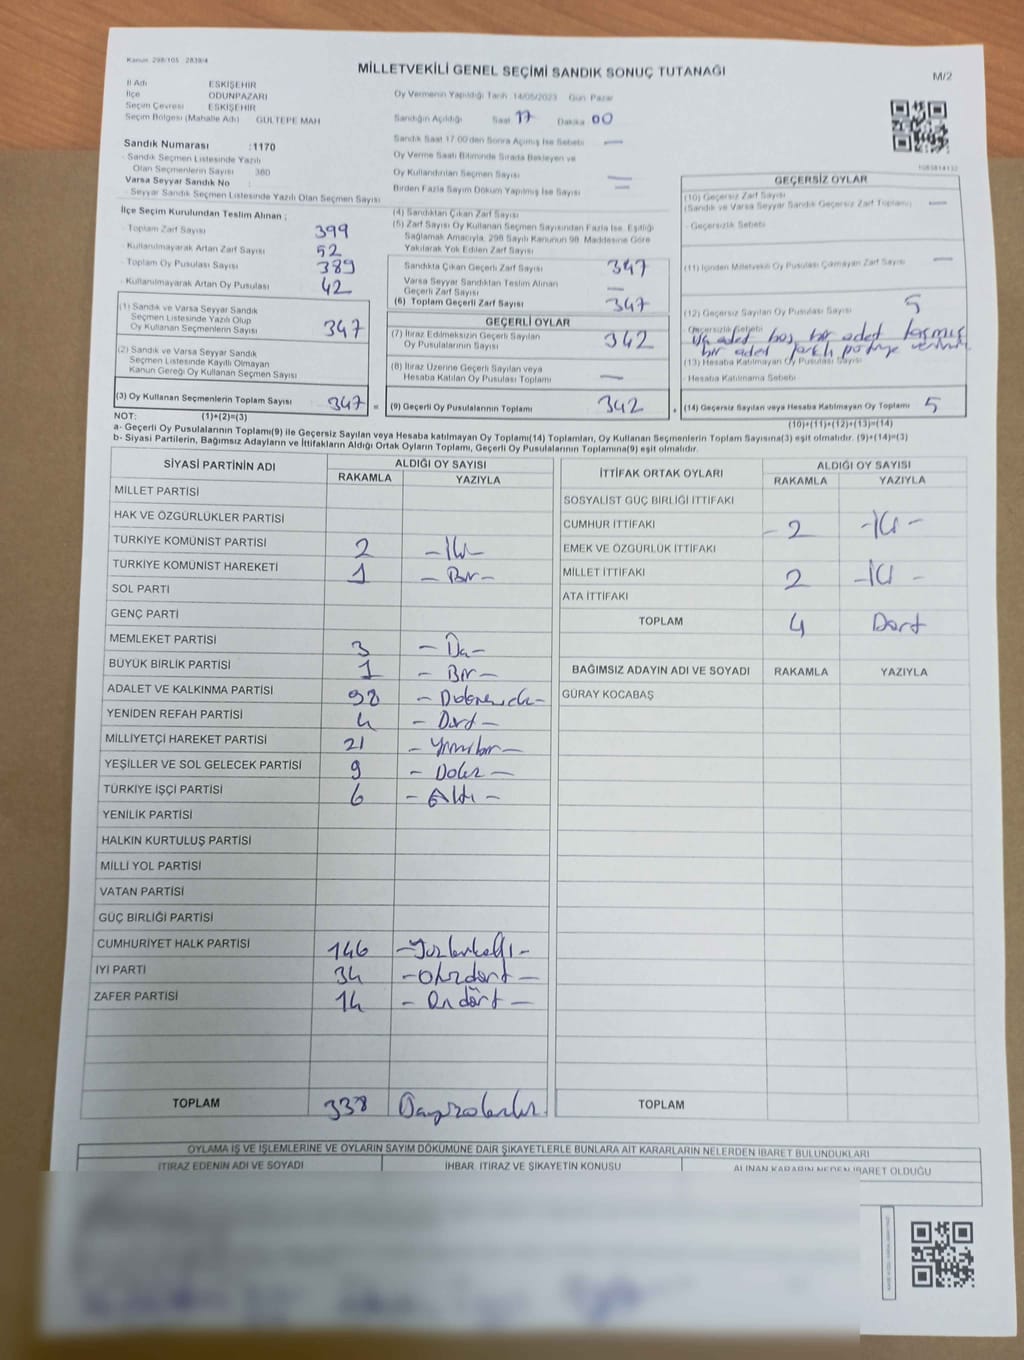 Kanun 298/105 2839/4
MİLLETVEKİLİ GENEL SEÇİMİ SANDIK SONUÇ TUTANAĞI
M/2
İl Adı ESKİŞEHİR
İlçe ODUNPAZARI
Seçim Çevresi ESKİŞEHİR
Seçim Bölgesi (Mahalle Adı) GÜLTEPE MAH
Sandık Numarası :1170
- Sandık Seçmen Listesinde Yazılı
Olan Seçmenlerin Sayısı 380
Varsa Seyyar Sandık No
- Seyyar Sandık Seçmen Listesinde Yazılı Olan Seçmen Sayısı
Oy Vermenin Yapıldığı Tarih 14/05/2023 Gün Pazar
Sandığın Açıldığı Saat 17 Dakika 00
Sandık Saat 17:00'den Sonra Açılmış İse Sebebi —
Oy Verme Saati Bitiminde Sırada Bekleyen ve
Oy Kullandırılan Seçmen Sayısı —
Birden Fazla Sayım Döküm Yapılmış İse Sayısı —
İlçe Seçim Kurulundan Teslim Alınan ;
- Toplam Zarf Sayısı 399
- Kullanılmayarak Artan Zarf Sayısı 52
- Toplam Oy Pusulası Sayısı 389
- Kullanılmayarak Artan Oy Pusulası 42
(1) Sandık ve Varsa Seyyar Sandık
Seçmen Listesinde Yazılı Olup
Oy Kullanan Seçmenlerin Sayısı 347
(2) Sandık ve Varsa Seyyar Sandık
Seçmen Listesinde Kayıtlı Olmayan
Kanun Gereği Oy Kullanan Seçmen Sayısı
(3) Oy Kullanan Seçmenlerin Toplam Sayısı 347 =
(4) Sandıktan Çıkan Zarf Sayısı
(5) Zarf Sayısı Oy Kullanan Seçmen Sayısından Fazla İse, Eşitliği
Sağlamak Amacıyla, 298 Sayılı Kanunun 98. Maddesine Göre
Yakılarak Yok Edilen Zarf Sayısı
Sandıkta Çıkan Geçerli Zarf Sayısı 347
Varsa Seyyar Sandıktan Teslim Alınan
Geçerli Zarf Sayısı —
(6) Toplam Geçerli Zarf Sayısı 347
GEÇERLİ OYLAR
(7) İtiraz Edilmeksizin Geçerli Sayılan
Oy Pusulalarının Sayısı 342
(8) İtiraz Üzerine Geçerli Sayılan veya
Hesaba Katılan Oy Pusulası Toplamı —
(9) Geçerli Oy Pusulalarının Toplamı 342 +
1083814132
GEÇERSİZ OYLAR
(10) Geçersiz Zarf Sayısı
(Sandık ve Varsa Seyyar Sandık Geçersiz Zarf Toplamı) —
- Geçersizlik Sebebi
(11) İçinden Milletvekili Oy Pusulası Çıkmayan Zarf Sayısı —
(12) Geçersiz Sayılan Oy Pusulası Sayısı 5
Geçersizlik Sebebi
üç adet boş bir adet taşmış
bir adet farklı partiye
(13) Hesaba Katılmayan Oy Pusulası Sayısı
- Hesaba Katılmama Sebebi
(14) Geçersiz Sayılan veya Hesaba Katılmayan Oy Toplamı 5
NOT: (1)+(2)=(3)
(10)+(11)+(12)+(13)=(14)
a- Geçerli Oy Pusulalarının Toplamı(9) ile Geçersiz Sayılan veya Hesaba katılmayan Oy Toplamı(14) Toplamları, Oy Kullanan Seçmenlerin Toplam Sayısına(3) eşit olmalıdır. (9)+(14)=(3)
b- Siyasi Partilerin, Bağımsız Adayların ve İttifakların Aldığı Ortak Oyların Toplamı, Geçerli Oy Pusulalarının Toplamına(9) eşit olmalıdır.
SİYASİ PARTİNİN ADI ALDIĞI OY SAYISI
RAKAMLA YAZIYLA
MİLLET PARTİSİ
HAK VE ÖZGÜRLÜKLER PARTİSİ
TÜRKİYE KOMÜNİST PARTİSİ 2 -İki-
TÜRKİYE KOMÜNİST HAREKETİ 1 -Bir-
SOL PARTİ
GENÇ PARTİ
MEMLEKET PARTİSİ 3
BÜYÜK BİRLİK PARTİSİ 1 -Bir-
ADALET VE KALKINMA PARTİSİ 98
YENİDEN REFAH PARTİSİ 4 -Dört-
MİLLİYETÇİ HAREKET PARTİSİ 21 -Yirmibir-
YEŞİLLER VE SOL GELECEK PARTİSİ 9 -Dokuz-
TÜRKİYE İŞÇİ PARTİSİ 6 -Altı-
YENİLİK PARTİSİ
HALKIN KURTULUŞ PARTİSİ
MİLLİ YOL PARTİSİ
VATAN PARTİSİ
GÜÇ BİRLİĞİ PARTİSİ
CUMHURİYET HALK PARTİSİ 146 -Yüzkırkaltı-
İYİ PARTİ 34 -Otuzdört-
ZAFER PARTİSİ 14 -Ondört-
TOPLAM 338
İTTİFAK ORTAK OYLARI ALDIĞI OY SAYISI
RAKAMLA YAZIYLA
SOSYALİST GÜÇ BİRLİĞİ İTTİFAKI
CUMHUR İTTİFAKI - 2 -İki-
EMEK VE ÖZGÜRLÜK İTTİFAKI
MİLLET İTTİFAKI 2 -İki-
ATA İTTİFAKI
TOPLAM 4 Dört
BAĞIMSIZ ADAYIN ADI VE SOYADI RAKAMLA YAZIYLA
GÜRAY KOCABAŞ
TOPLAM
OYLAMA İŞ VE İŞLEMLERİNE VE OYLARIN SAYIM DÖKÜMÜNE DAİR ŞİKAYETLERLE BUNLARA AİT KARARLARIN NELERDEN İBARET BULUNDUKLARI
İTİRAZ EDENİN ADI VE SOYADI İHBAR, İTİRAZ VE ŞİKAYETİN KONUSU ALINAN KARARIN NEDEN İBARET OLDUĞU